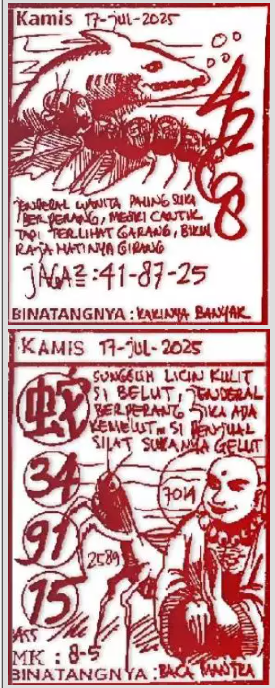 Kamis 17-jul-2025
4268
JENDERAL WANITA PALING SUKA
BERPERANG, MESKI CANTIK
TAPI TERLIHAT GARANG, BIKIN
RAJA HATINYA GIRANG
JAGA2 : 41-87-25
BINATANGNYA : KAKINYA BANYAK
KAMIS 17-jul-2025
SUNGGUH LICIN KULIT
SI BELUT, JENDERAL
BERPERANG JIKA ADA
KEMELUT, SI PENJUAL
SILAT SUKANYA GELUT
蛇
34
7014
91
2589
15
ASS
MK : 8-5
BINATANGNYA : BACA MANTRA